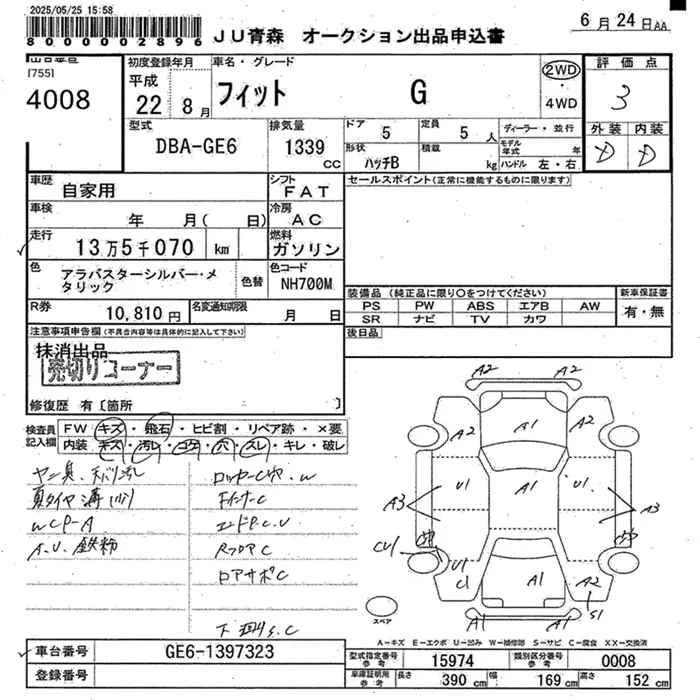 2025/05/25 15:58
8000000002896
JU青森 オークション出品申込書
6月24日AA
[755]
4008
初度登録年月
平成
22 8月
車名・グレード
フィット G
2WD
・
4WD
評価点
3
外装 内装
D D
型式
DBA-GE6
排気量
1339
CC
ドア 5
定員 5人
ディーラー・並行
形状 ハッチB
積載 kg
モデル年式 年
ハンドル 左・右
車歴 自家用
シフト FAT
セールスポイント(正常に機能するものに限ります)
車検 年 月( 日)
冷房 AC
走行 13万5千070 km
燃料 ガソリン
色 アラバスターシルバー・メタリック
色替
色コード NH700M
装備品 (純正品に限り○をつけてください)
新車保証書
PS PW ABS エアB AW
有・無
SR ナビ TV カワ
R券 10,810円
名変通知期限 月 日
後日品
注意事項申告欄(不具合内容等は具体的に記入して下さい)
抹消出品
売切りコーナー
修復歴 有〔箇所 〕
検査員記入欄
FW キズ・飛石・ヒビ割・リペア跡・×要
内装 キズ・汚レ・コゲ・穴・スレ・キレ・破レ
ヤニ臭、天バリ汚レ
夏タイヤ溝
WCP-A
A.U. 鉄粉
ロッカーC
FインナーC
エンドP.C.U
RフロアC
ロアサポC
A2 A2
A2 A1 A2
A3 U1 A1 U1 A3
CU1 U1 C1 A1 A2 S1
A1 A1
スペア
A-キズ E-エクボ U-凹み W-補修跡 S-サビ C-腐食 XX-交換済
車台番号 GE6-1397323
登録番号
型式指定番号 参考 15974
類別区分番号 参考 0008
車庫証明用 参考 長さ 390cm 幅 169cm 高さ 152cm